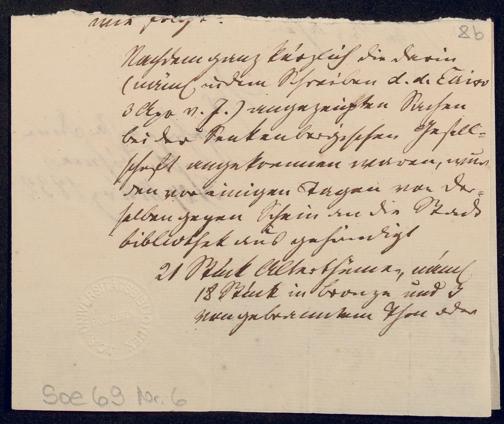 wie folgt:
8b
Nachdem ganz kürzlich die darin
(näml in dem Schreiben d. d. Cairo
3 Apr v. J.) angezeigten Sachen
bei der Senkenbergischen Gesell-
schaft angekommen waren, wur
den vor einigen Tagen von der-
selben gegen Schein an die Stadt
bibliothek ausgehändigt
21 Stück Alterthümer, näml
18 Stück in Bronze und 3
von gebranntem Thon oder
Soe 69 Nr. 6